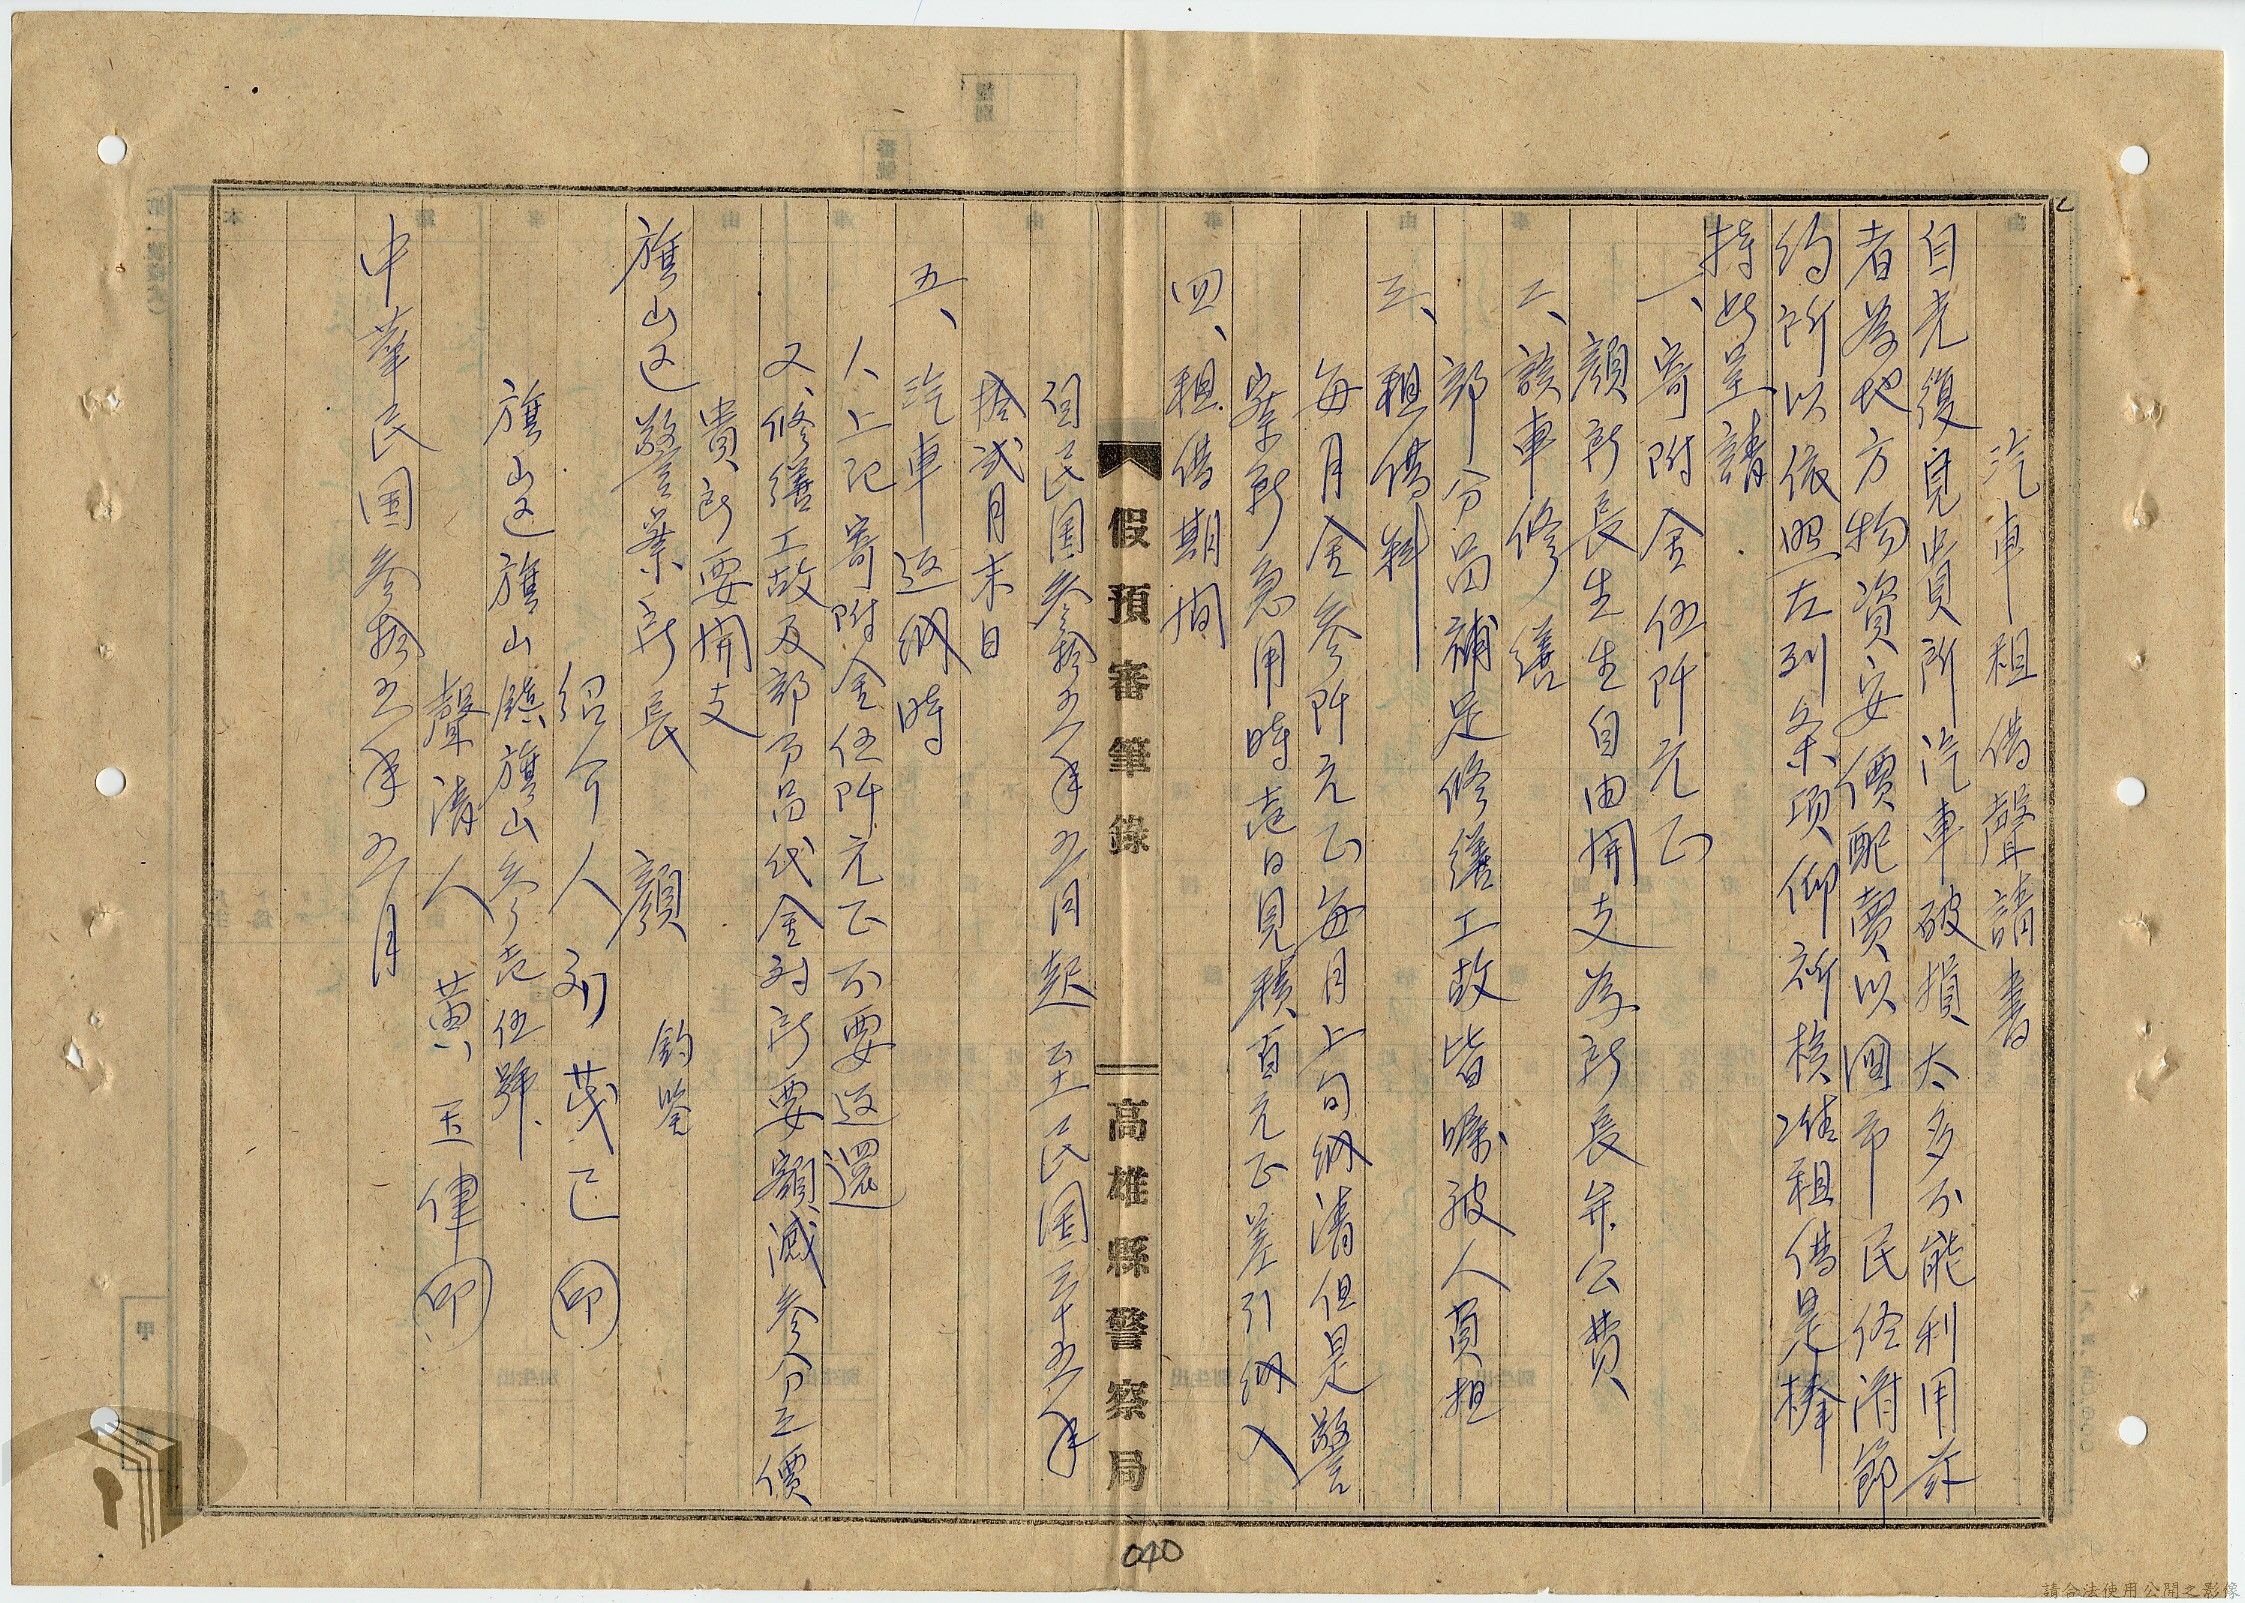 汽車租借聲請書
自光復見貴所汽車破損太多不能利用茲
者為地方物資安價配賣以圖市民经済節
約所以依照左列条項仰祈核准租借是榛
持此呈請
一、寄附金伍阡元正
顏所長生生自由開支為所長弁公費
二、該車修繕
部分品補足修繕工故皆嘱被人負担
三、租借料
每月金參阡元正每月上旬納清但是警
察所急用時壱日見積百元正差引納入
四、租借期間
自民国叁拾五年五月起至民国三十五年
拾弍月末日
五、汽車返納時
人、上记寄附金伍阡元正不要返還
又、修繕工故及部分品代金対所要額減参分之價
貴所要開支
旗山区警察所長 顏 鈞鑒
紹介人 刘茂己 印
旗山区旗山鎮旗山参ノ壱伍號
聲清人 黃玉律 印
中華民国叁拾五年五月
假預審筆錄
高雄縣警察局
040
請合法使用公開之影像